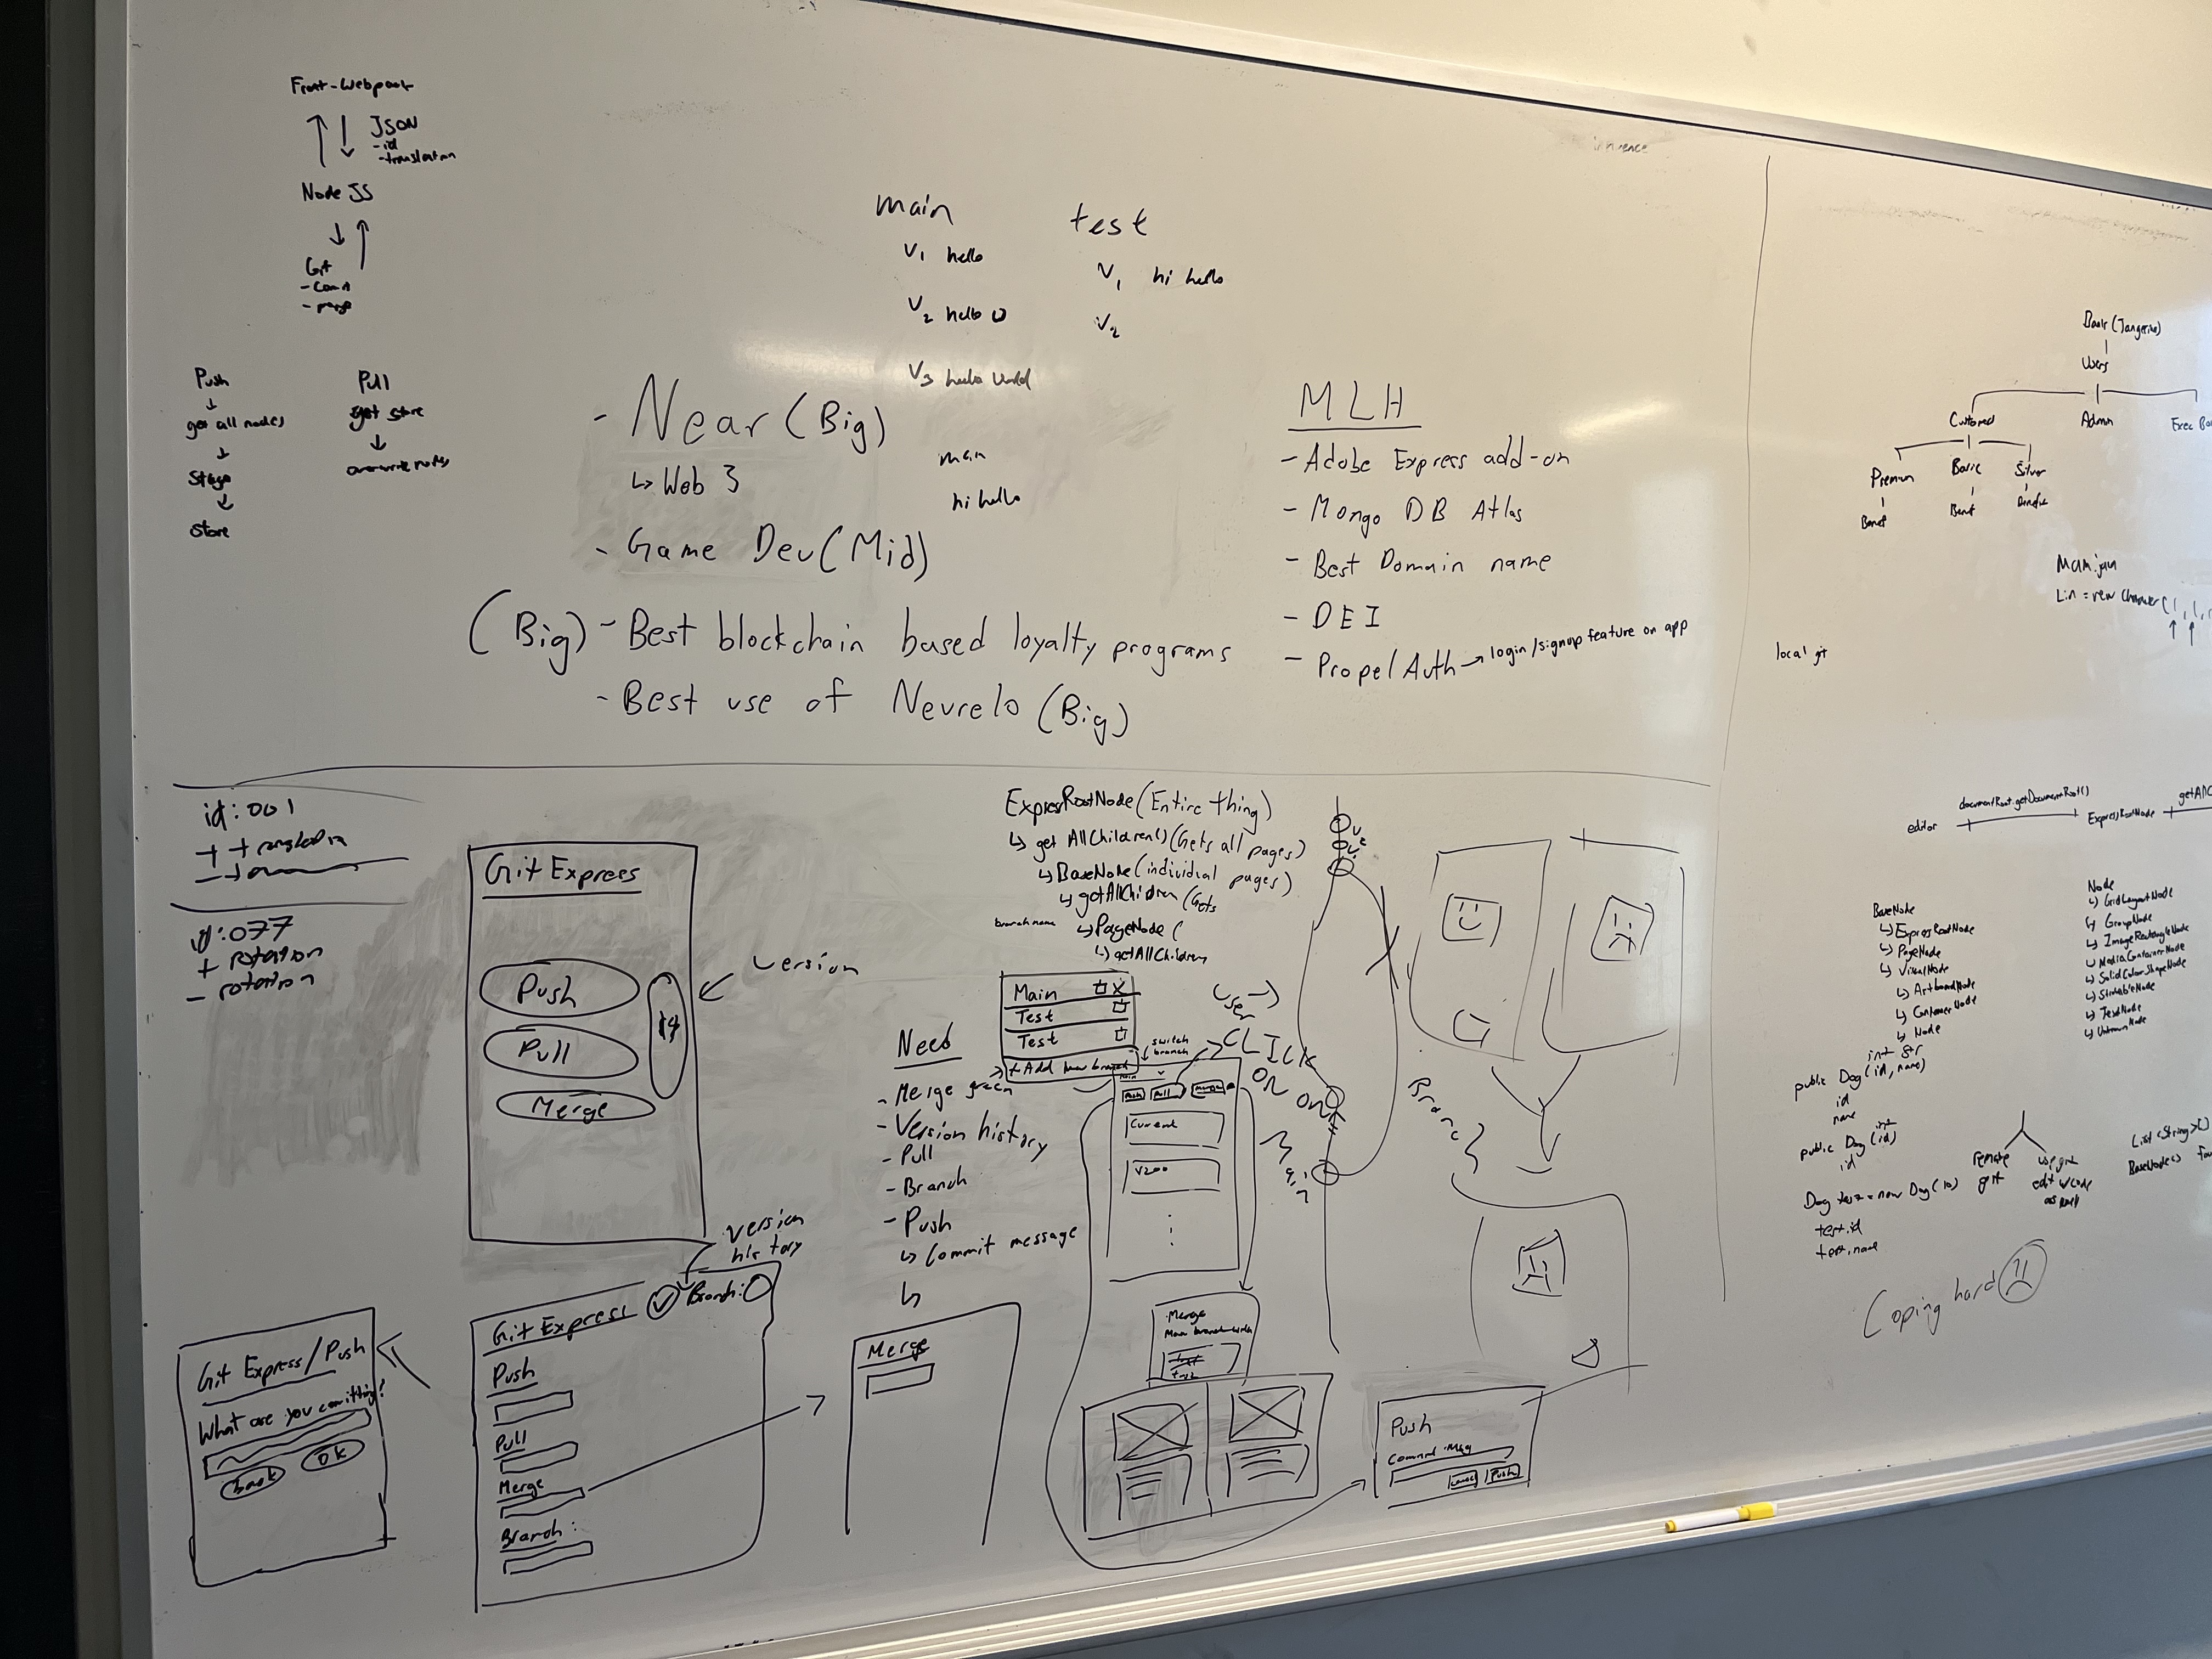 Front-Webpack
JSON
-id
-translation
Node JS
Git
main
V1 hello
V2 hello
V3 hello
test
V1 hi hello
V2
Push
get all nodes
Stage
Store
Pull
get store
overwrite nodes
- Near (Big)
↳ Web 3
main
hi hello
- Game Dev (Mid)
(Big) - Best blockchain based loyalty programs
- Best use of Neurelo (Big)
MLH
- Adobe Express add-on
- Mongo DB Atlas
- Best Domain name
- DEI
- Propel Auth → login/signup feature on app
Users
Admin
Premium
Basic
Silver
local git
id:001
id:077
+ rotation
- rotation
Git Express
Push
Pull
Merge
version
ExpressRootNode (Entire thing)
↳ get AllChildren() (Gets all pages)
↳ BaseNode (individual pages)
↳ getAllChildren (Gets
branch name
↳ PageNode (
↳ getAllChildren
Main
Test
Test
+ Add new branch
switch branch
CLICK
ON
Push
Pull
Merge
Current
V200
Need
- Merge
- Version history
- Pull
- Branch
- Push
↳ Commit message
↳
version history
Git Express/Push
What are you comitting?
back
OK
Git Express
Branch:
Push
Pull
Merge
Branch:
Merge
Merge
Push
Commit Msg
Cancel
Push
documentRoot.getDocumentRoot()
editor
ExpressRootNode
BaseNode
↳ ExpressRootNode
↳ PageNode
↳ VisualNode
↳ ArtboardNode
↳ ContainerNode
↳ Node
Node
↳ GridLayoutNode
↳ GroupNode
↳ ImageRectangleNode
↳ MediaContainerNode
↳ SolidColorShapeNode
↳ StrokableNode
↳ TextNode
↳ UnknownNode
int str
public Dog (id, name)
id
name
int
public Dog (id)
id
Dog test = new Dog (10)
test.id
test.name
remote git
Coping hard